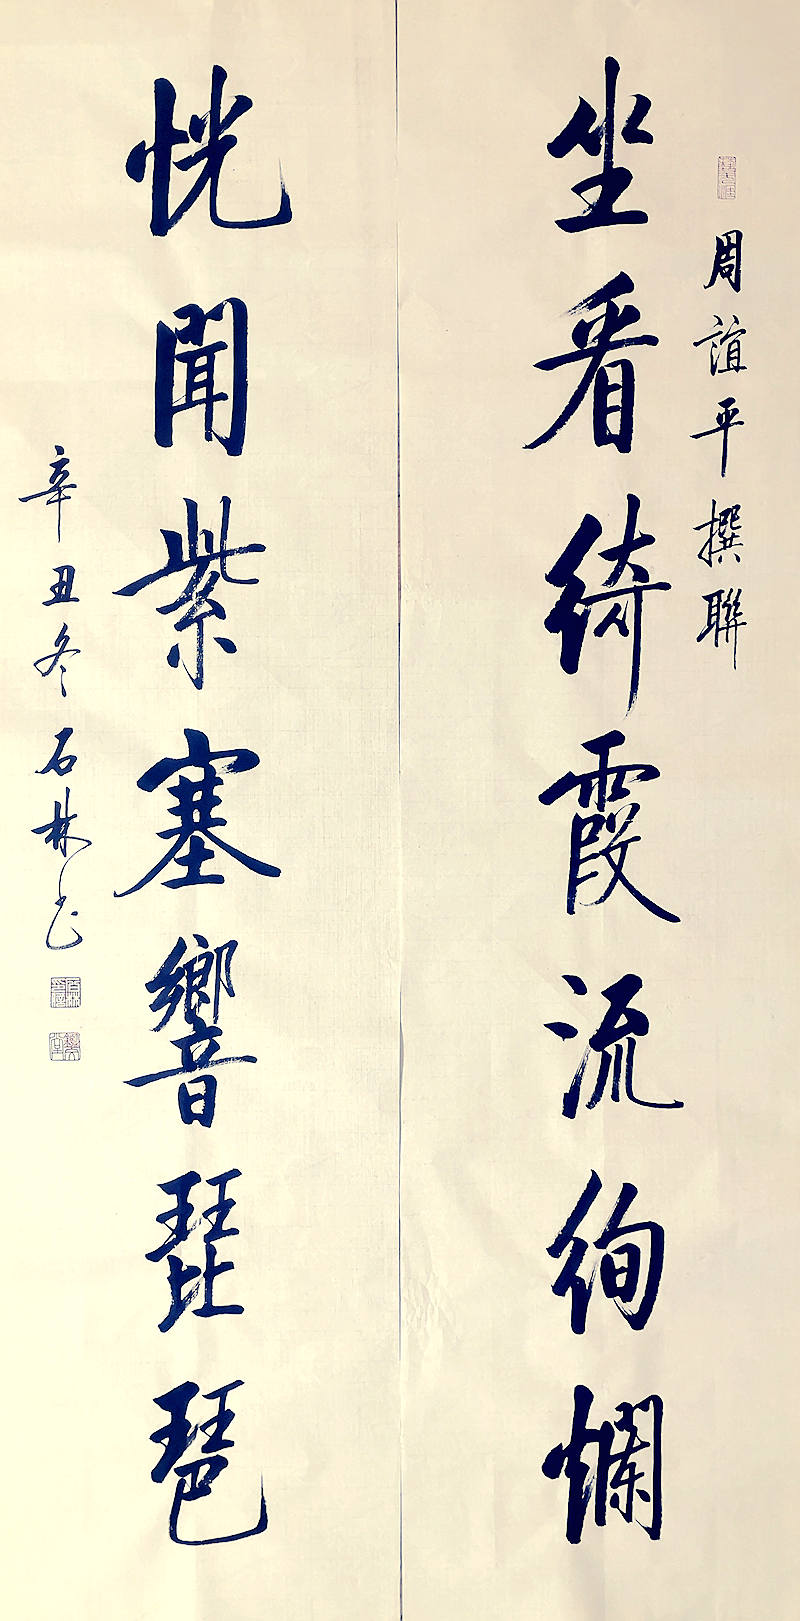 周誼平撰聯
坐看綺霞流絢爛
恍聞紫塞響琵琶
辛丑冬石林書